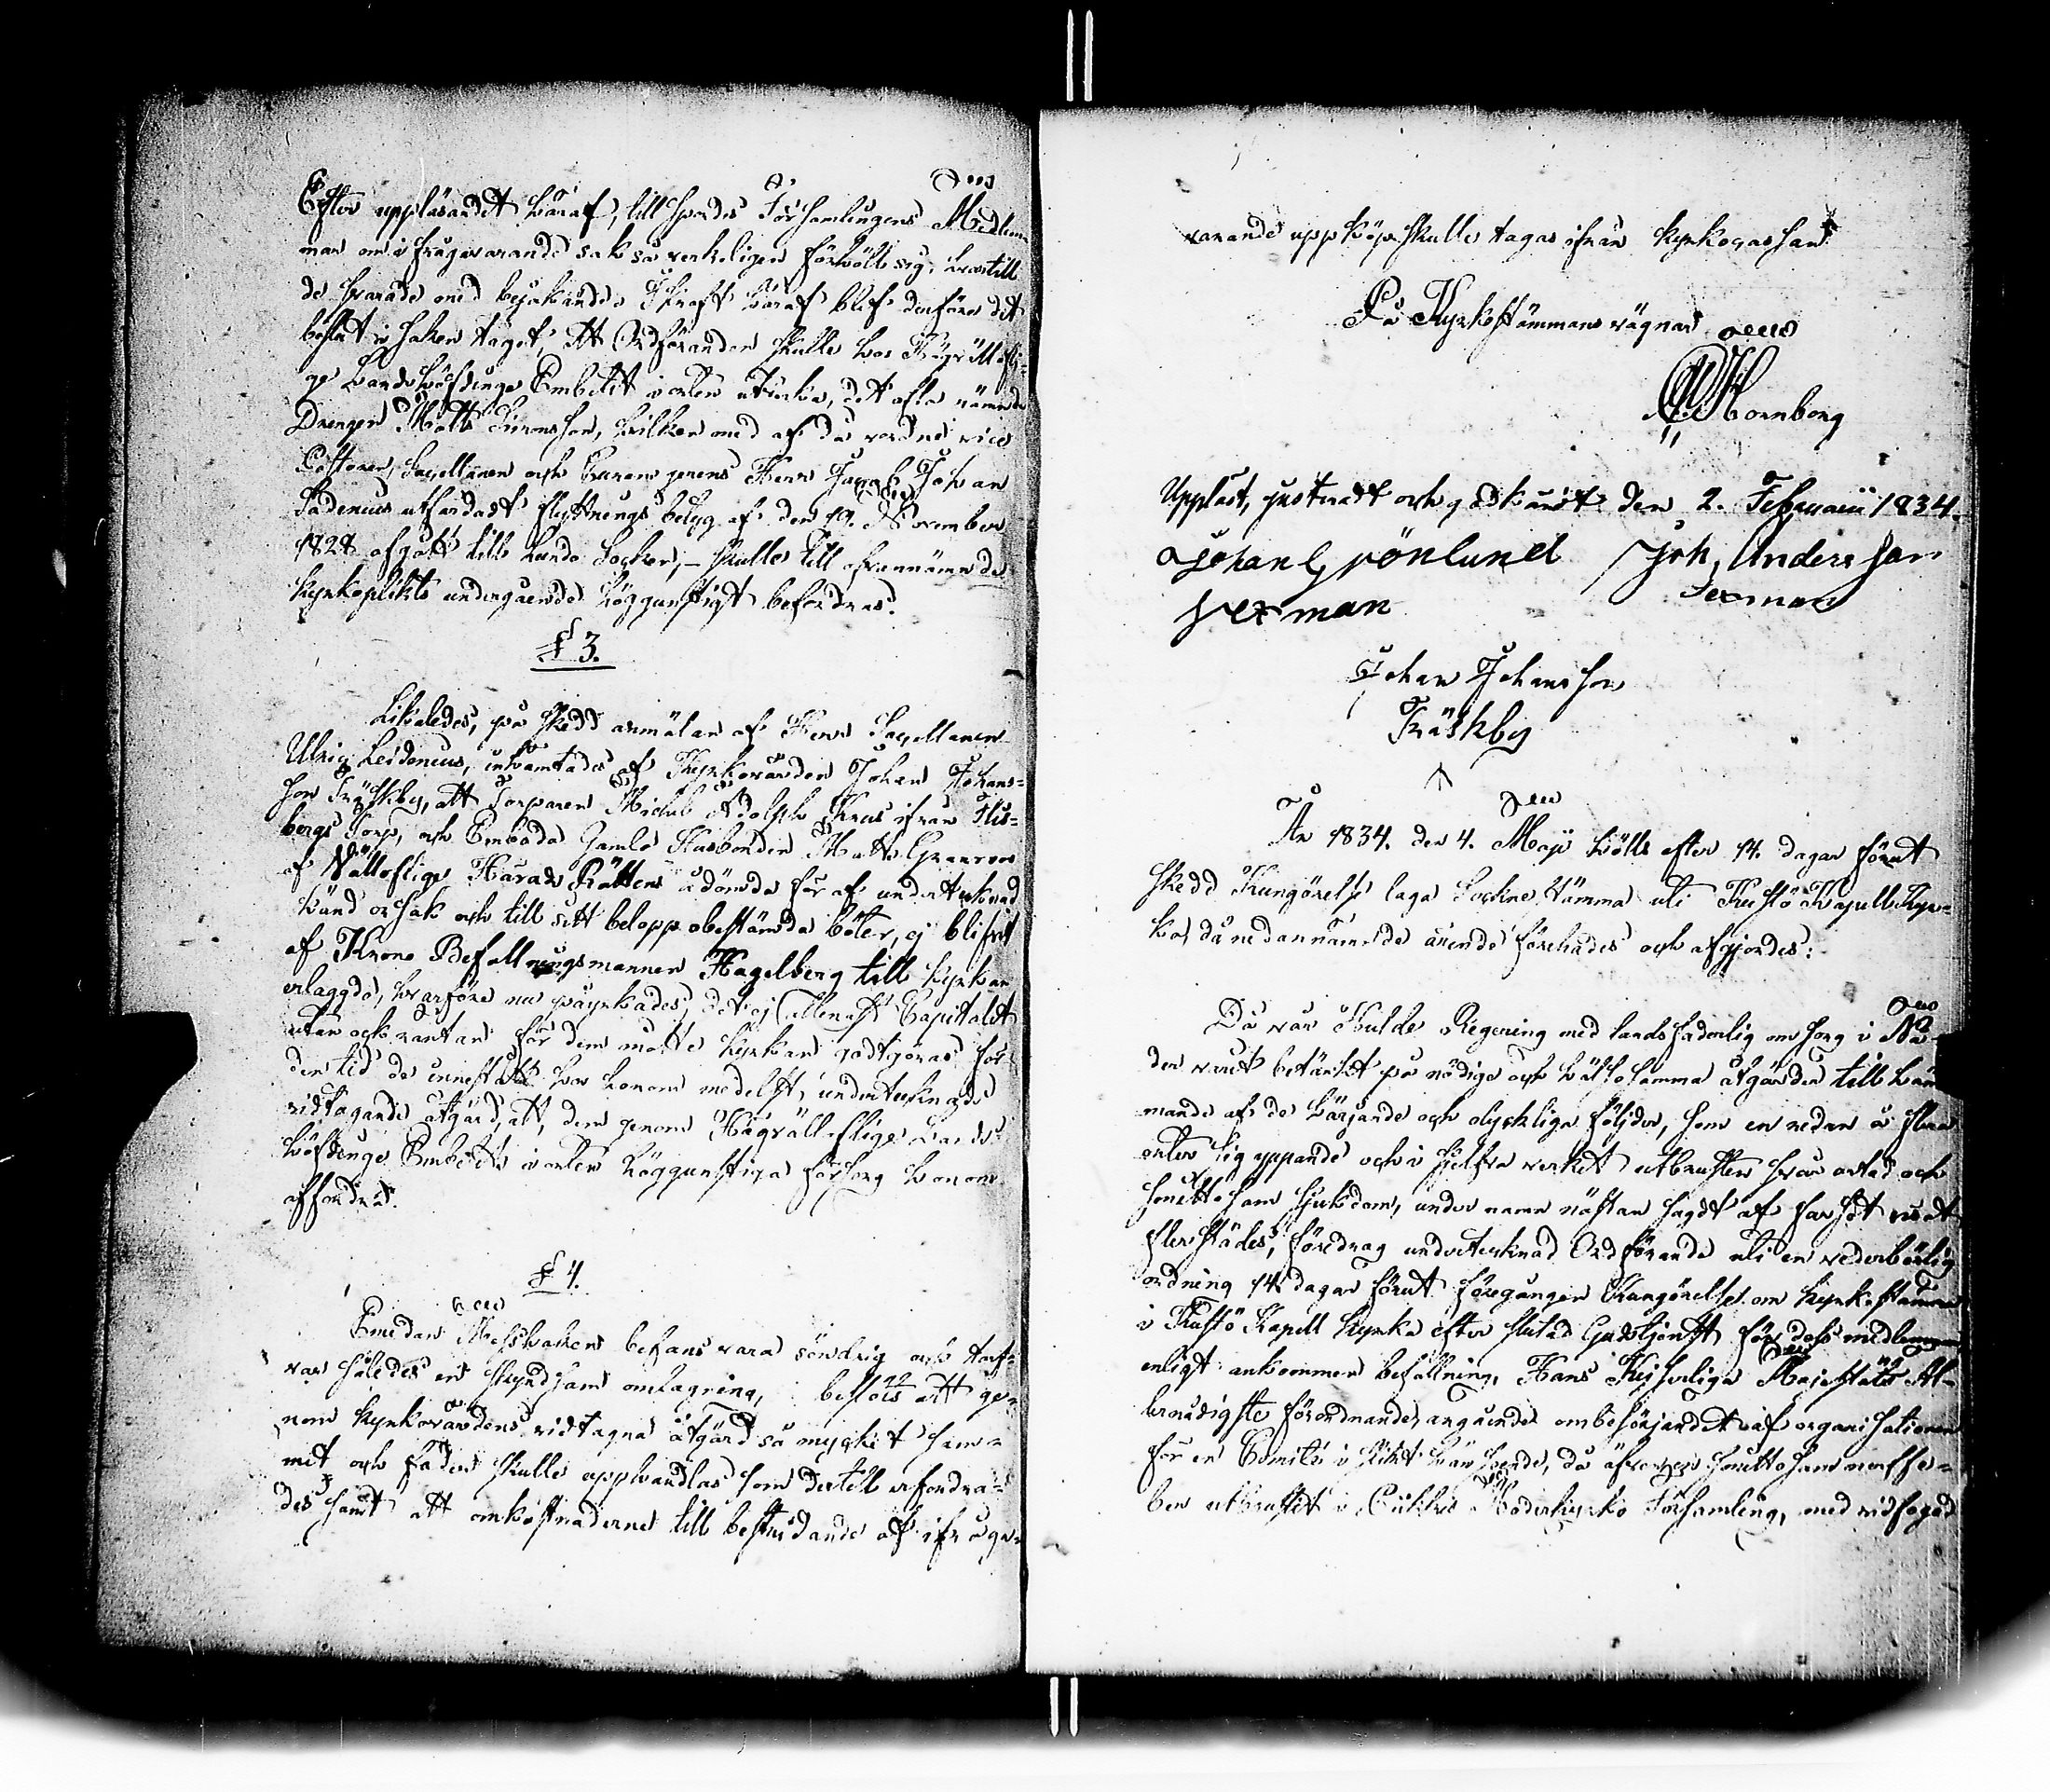 Efter uppläsandet häraf, tillspordes Församlingens Medlem-
mar om ifrågavarande sak så verkeligen förhölle sig, hvartill
de svarade med bejakande. I kraft häraf blef derföre det
beslut i saken taget, att Ordföranden skulle hos Högvällofli-
ge Landshöfdinge Embetet i orten utverka, det ofta nämnde
Drengen Matts Simonsson, hvilken med af då vordne vice
Pastoren, Capellanen och Herr Jacob Johan
Sadenius utfärdadt flyttnings betyg af den 19. November
1828 afgått till Lundo Socken, – skulle till ofvannämnde
kyrkoplikts undergående höggunstigt befordras.
§ 3.
Likaledes, på skedd anmälan af Herr Capellanen
Ulric Leidenius, inhämtades af Kyrkovärden Johan Johans-
son Träskby, att Torparen Michel Adolph Krus ifrån
bergs Torp, och Embods Gamle Husbonden Matts
af Vällofliga Härads Rätten ådömda för af undertecknad
känd orsak och till sitt belopp obestämda böter, ej blifvit
af Krono Befallningsmannen Hagelberg till kyrkan
erlaggde, hvarföre nu påyrkades, det ej allenast Capitalet
utan ock räntan för dem måtte kyrkan godtgöras för
den tid de innestått hos honom medelst undertecknads
vidtagande åtgärd, att, dem genom Högvälloflige Lands-
höfdinge Embetets i orten höggunstiga försorg honom
affordra.
§ 4.
Emedan Messhaken befans vara söndrig och tarf-
var således en skyndsam omlagning, beslöts att ge-
nom kyrkovärdens vidtagna åtgärd så mycket sam-
met och foder skulle upphandlas som dertill erfordra-
des samt att omkostnaderne till bestridande af ifråga-
varande uppköp skulle tagas ifrån kyrkocassan.
På Kyrkostämmans vägnar
Hornborg
Uppläst, justeradt och godkändt den 2. Februarii 1834.
Johan Grönlund Joh, Andersson
sexman Sexman
Johan Johansson
Träskby
År 1834. den 4. Maji hölls efter 14. dagar förut
skedd Kungörelse laga Sockne Stämma uti Kustö Kapell Kyr-
ka, då nedannämnde ärende förehades och afgjordes:
Då vår Hulde Regering med landsfaderlig omsorg i Nå-
der varit betänkt på nödige och hälsosamma åtgärder till häm-
mande af de härjande och olyckliga följder, som en redan å flera
orter sig yppande och i sjelfva verket utbrusten svårartad och
smittosam sjukdom, under namn nästan sagdt af farsot
flerstädes, föredrog undertecknad Ordförande uti en vederbörlig
ordning 14 dagar förut föregången Kungörelse om kyrkostämma
i Kustö Kapell kyrka efter slutad Gudstjenst för dess medlemmar,
enligt ankommen befallning, Hans Kejserliga Majestäts Al-
lernådigste förordnande, angående ombesörjandet af organisationen
för en Comité i sådant hänseende, då äfven smittosam nerffe-
ber utbrustit i Piikkis Moderkyrko Församling, med vidfogad